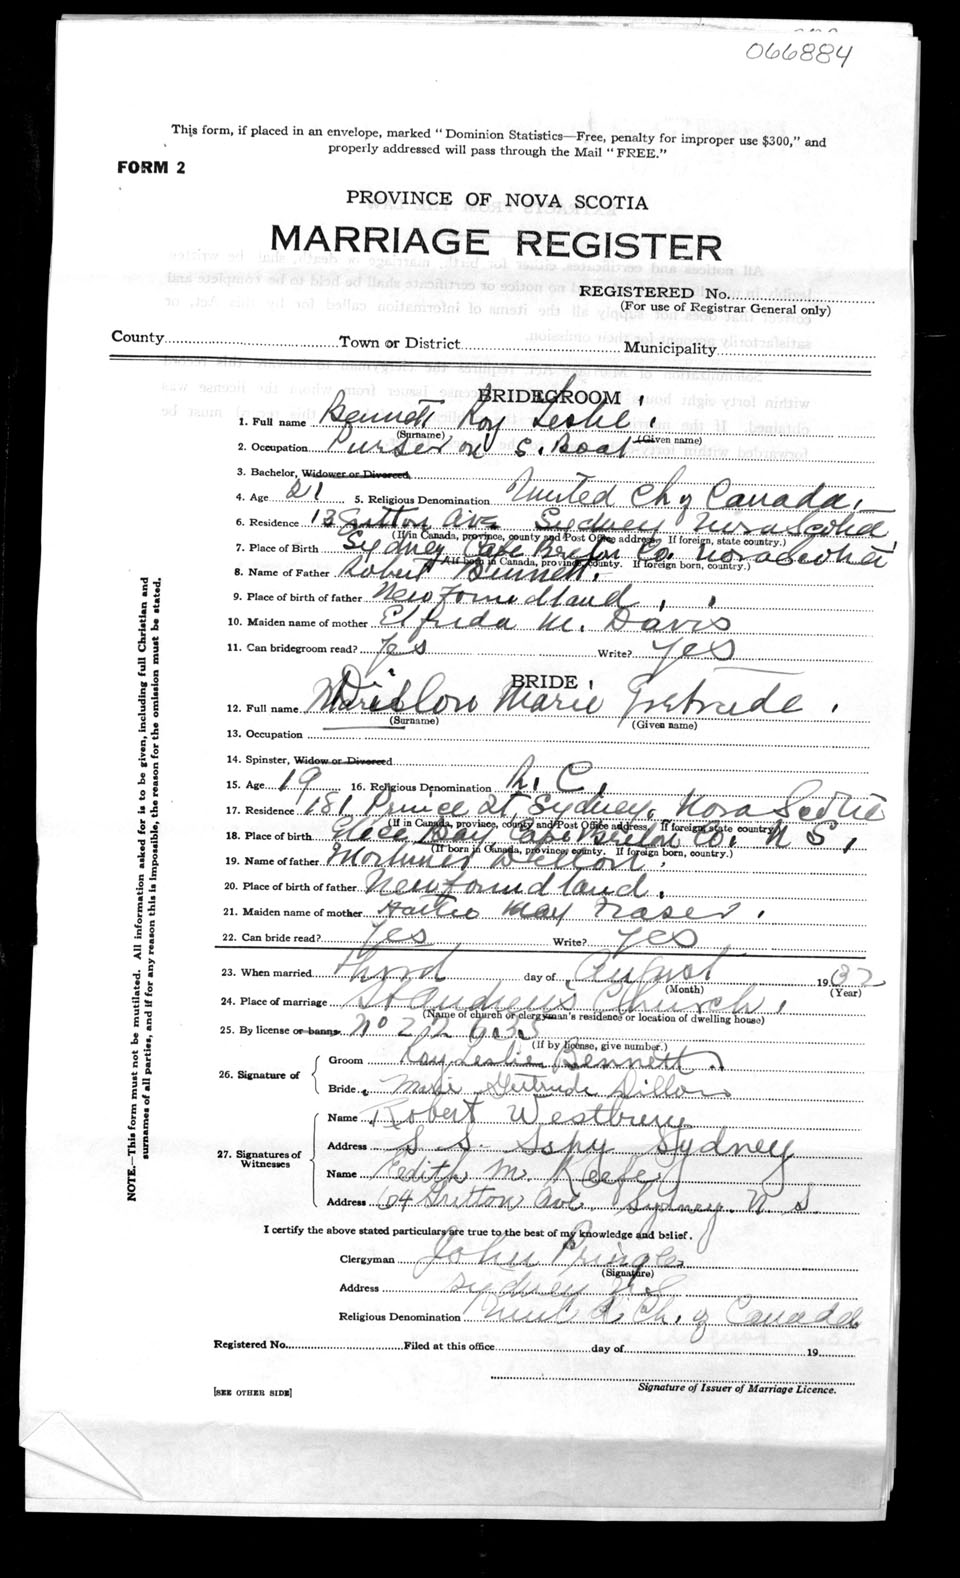 066884
This form, if placed in an envelope, marked "Dominion Statistics—Free, penalty for improper use $300," and
properly addressed will pass through the Mail "FREE."
FORM 2
PROVINCE OF NOVA SCOTIA
MARRIAGE REGISTER
REGISTERED No.
(For use of Registrar General only)
County Town or District Municipality
BRIDEGROOM
1. Full name Bennett Roy Leslie
(Surname) (Given name)
2. Occupation Purser on S. Boat
3. Bachelor, Widower or Divorced
4. Age 21 5. Religious Denomination United Ch of Canada
6. Residence Ave Sydney Nova Scotia
(If in Canada, province, county and Post Office address. If foreign, state country.)
7. Place of Birth Sydney Cape Breton Co. Nova Scotia
(If born in Canada, province, county. If foreign born, country.)
8. Name of Father Robert Bennett.
9. Place of birth of father Newfoundland
10. Maiden name of mother Elfrida M. Davis
11. Can bridegroom read? Yes Write? yes
BRIDE
12. Full name Dillon Marie Gertrude
(Surname) (Given name)
13. Occupation
14. Spinster, Widow or Divorced
15. Age 19 16. Religious Denomination R. C.
17. Residence 181 Prince St Sydney, Nova Scotia
(If in Canada, province, county and Post Office address. If foreign state country)
18. Place of birth Glace Bay Cape Breton Co. N S,
(If born in Canada, province, county. If foreign born, country.)
19. Name of father Mortimer Dillon
20. Place of birth of father Newfoundland.
21. Maiden name of mother Hattie May Fraser
22. Can bride read? Yes Write? Yes
23. When married third day of August 1932
(Month) (Year)
24. Place of marriage St Andrews Church
(Name of church or clergyman's residence or location of dwelling house)
25. By license or banns No
(If by license, give number.)
26. Signature of
Groom Roy Leslie Bennett
Bride Marie Gertrude Dillon
27. Signatures of Witnesses
Name Robert Westbury
Address S. S. Sspy Sydney
Name Edith M. Keefe
Address 64 Ave. Sydney. N. S.
I certify the above stated particulars are true to the best of my knowledge and belief.
Clergyman John Pringle
(Signature)
Address Sydney N S
Religious Denomination United Ch. of Canada
Registered No. Filed at this office day of 19
Signature of Issuer of Marriage Licence.
[SEE OTHER SIDE]
NOTE.—This form must not be mutilated. All information asked for is to be given, including full Christian and
surnames of all parties, and if for any reason this is impossible, the reason for the omission must be stated.